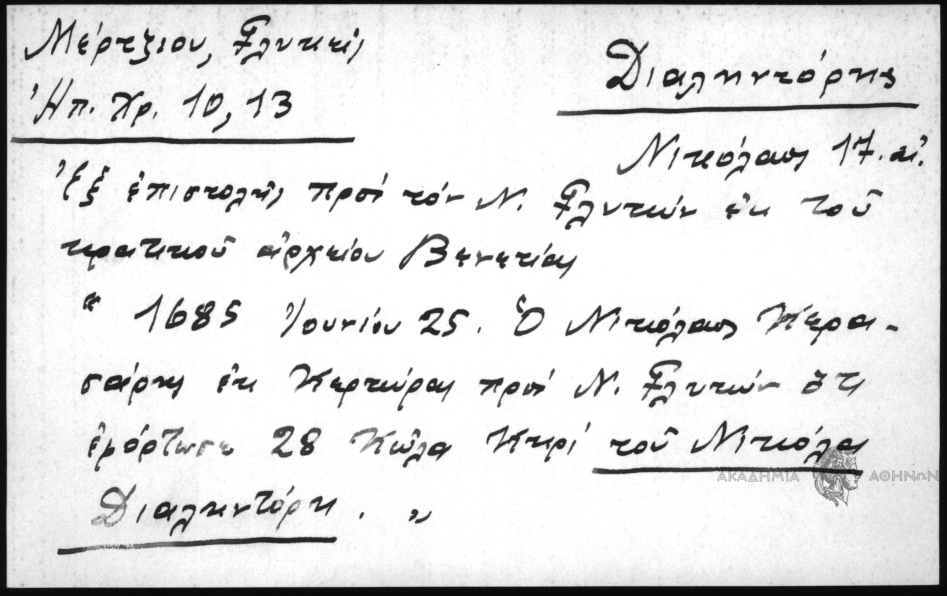 Μέρτζιου, Γλυκεῖς
Ἠπ. Χρ. 10, 13
Διαληντόρης
Νικόλαος 17. αἰ.
Ἐξ ἐπιστολῆς πρὸς τὸν Ν. Γλυκὺν ἐκ τοῦ
κρατικοῦ ἀρχείου Βενετίας
" 1685 Ἰουνίου 25. Ὁ Νικόλαος Κερα-
σάρης ἐκ Κερκύρας πρὸς Ν. Γλυκὺν ὅτι
ἐφόρτωσε 28 Κῶλα Κερί τοῦ Νικόλα
Διαληντόρη. "
ΑΚΑΔΗΜΙΑ ΑΘΗΝΩΝ